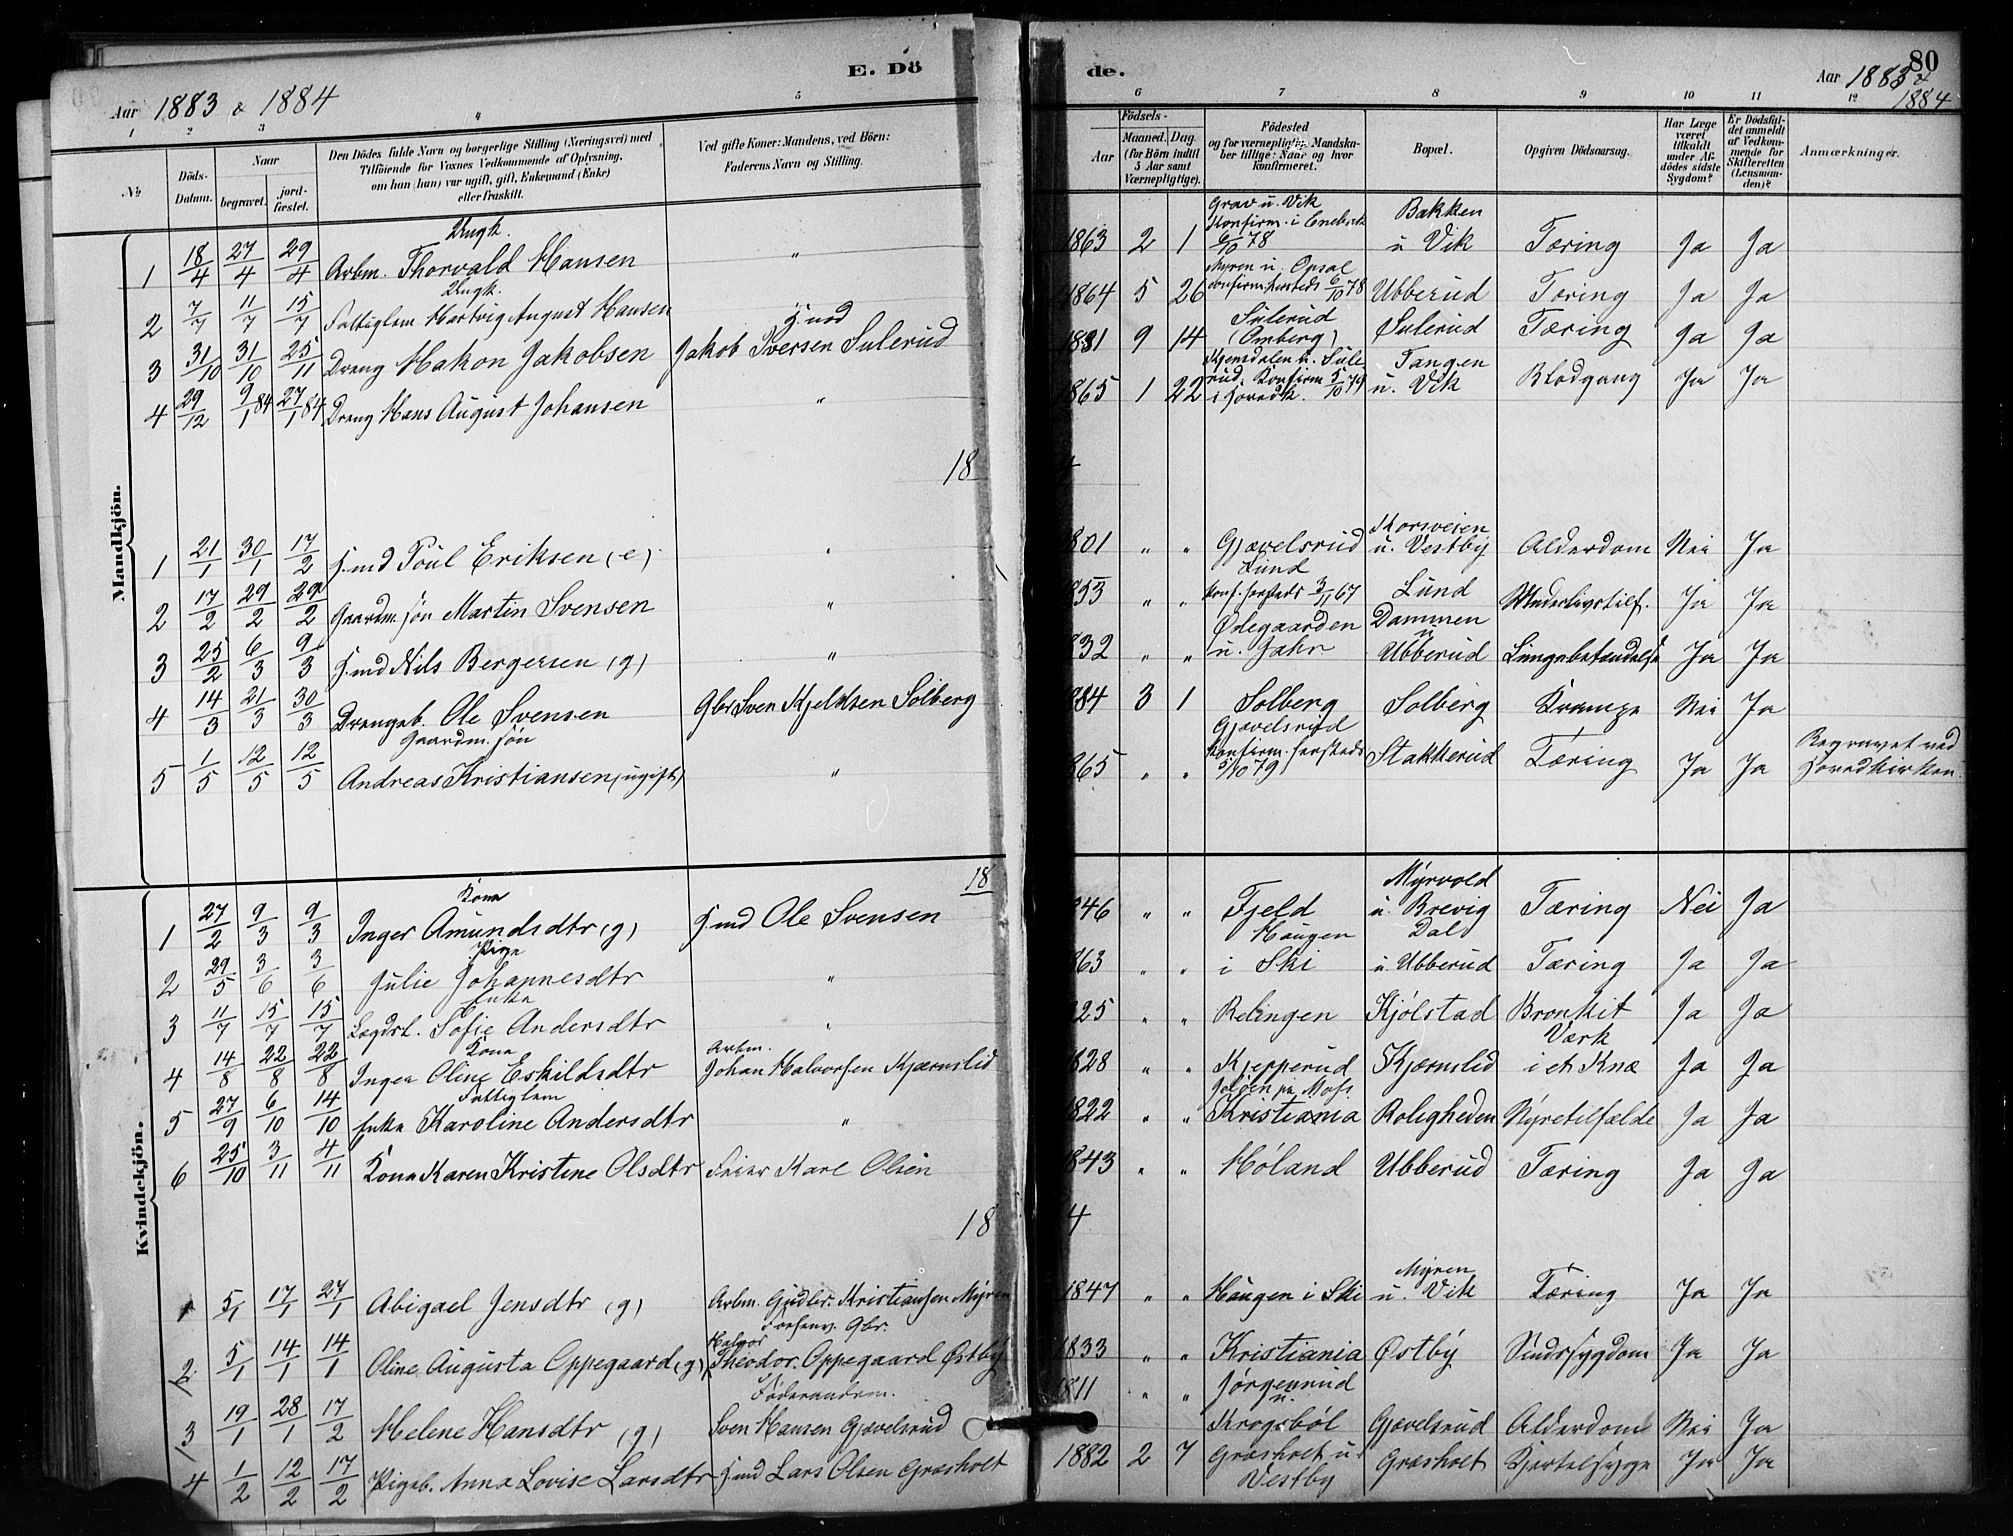 E. Dö
de.
80
Aar 1883 & 1884
Aar 1883 &
1884
1 2 3 4 5 6 7 8 9 10 11 12
No
Döds-
Datum.
Naar
begravet.
jord-
fæstet.
Den Dödes fulde Navn og borgerlige Stilling (Næringsvei) med
Tilföiende for Voxnes Vedkommende af Oplysning,
om han (hun) var ugift, gift, Enkemand (Enke)
eller fraskilt.
Ved gifte Koner: Mandens, ved Börn:
Faderens Navn og Stilling.
Födsels-
Aar
Maaned. Dag.
(for Börn indtil
5 Aar samt
Værnepligtige).
Födested
og for værnepligtige Mandska-
ber tillige: Naar og hvor
konfirmeret.
Bopæl.
Opgiven Dödsaarsag.
Har Læge
været
tilkaldt
under Af-
dödes sidste
Sygdom?
Er Dödsfal-
det anmeldt
af Vedkom-
mende for
Skifteretten
(Lensman-
den)?
Anmærkninger.
Mandkjön.
Ungk.
1 18/4 27/4 29/4 Arbm. Thorvald Hansen " 1863 2 1 Grav u. Vik Konfirm. i Enebak 6/10 78 Bakken u Vik Tæring Ja Ja
Ungk.
2 7/7 11/7 15/7 Fattiglem Hartvig August Hansen 1864 5 26 Myren u. Opsal konfirm. hersteds 6/10 78 Ubberud Tæring Ja Ja
3 31/10 31/10 25/11 Dreng Hakon Jakobsen H.md Jakob Iversen Sulerud 1881 9 14 Sulerud (Omberg) Sulerud Tæring Ja Ja
4 29/12 9/1 84 27/1 84 Dreng Hans August Johansen " 1865 1 22 u. Sulerud. Konfirm. 5/10 79 i Hovedk. Tangen u. Vik Blodgang Ja Ja
18 4
1 21/1 30/1 17/2 H.md Poul Eriksen (e) " 1801 " " Gjævelsrud Korsveien u. Vestby Alderdom Nei Ja
2 17/2 29/2 29/2 Gaardm. søn Martin Svensen " 1853 " " Lund konf. hersteds 3/11 67 Lund Underlivstilf. Ja Ja
3 25/2 6/3 9/3 H.md Nils Bergersen (g) " 1832 " " Ødegaarden u. Jahr Dammen u Ubberud Lungebetændelse Ja Ja
4 14/3 21/3 30/3 Drengeb. Ole Svensen Gbr Sven Kjeldsen Solberg 1884 3 1 Solberg Solberg Krampe Nei Ja
Gaardm. søn
5 1/5 12/5 12/5 Andreas Kristiansen (ugift) " 1865 " " Gjævelsrud Konfirm. hersteds 5/10 79 Stakkerud Tæring Ja Ja Begravet ved Hovedkirken.
Kvindekjön.
18
Kona
1 27/2 9/3 9/3 Inger Amundsdtr (g) H.md Ole Svensen 1846 " " Fjeld Myrvold u. Brevig Tæring Nei Ja
Pige
2 29/5 3/6 3/6 Julie Johannesdtr " 1863 " " Haugen i Ski Dal u. Ubberud Tæring Ja Ja
Enke
3 11/7 15/7 15/7 Lægdsl. Sofie Andersdtr " 1825 " " Relingen Kjølstad Bronkit Ja Ja
Kona
4 14/8 22/8 22/8 Inger Oline Eskildsdtr Arbm. Johan Halvorsen Kjærnslid 1828 " " Kjepperud Kjærnslid Værk i et Knæ Ja Ja
Fattiglem
5 27/9 6/10 14/10 Enke Karoline Andersdtr " 1822 " " Jeløen pr Moss. Kristiania Roligheden Nyretilfælde Ja Ja
6 25/10 3/11 4/11 Kona Karen Kristine Olsdtr Feier Karl Olsen 1843 " " Høland Ubberud Tæring Ja Ja
18 4
1 5/1 17/1 27/1 Abigael Jensdtr (g) Arbm. Gudbr. Kristiansen Myren 1847 " " Haugen i Ski Myren u. Vik Tæring Ja Ja
2 5/1 14/1 14/1 Oline Augusta Oppegaard (g) Forhenv. Gbr. Halvor Theodor Oppegaard Østby 1833 " " Kristiania Østby Sindssygdom Ja Ja
3 19/1 28/1 17/2 Helene Hansdtr (g) Føderaadsm. Sven Hansen Gjævelsrud 1811 " " Jørgenrud u. Krogsbøl Gjævelsrud Alderdom Nei Ja
4 1/2 12/2 17/2 Pigeb. Anna Lovise Larsdtr H.md Lars Olsen Græsholt 1882 2 7 Græsholt u Vestby Græsholt Kjertelsyge Ja Ja